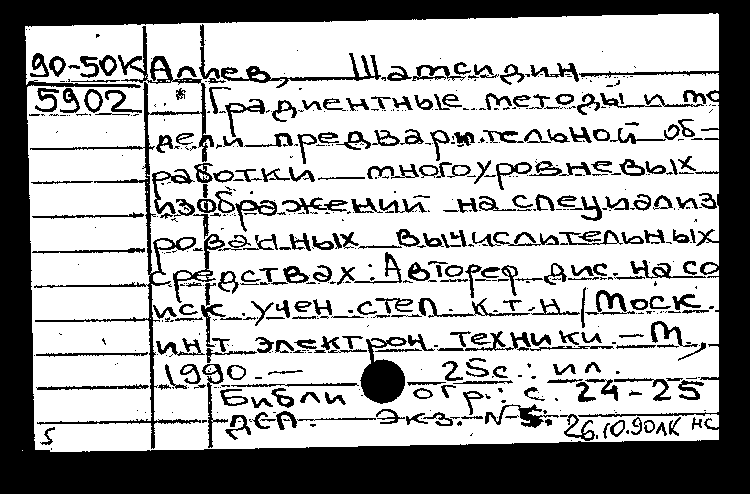 90-50К Алиев, Шамсидин
5902 * Градиентные методы и мо
дели предварительной об-
работки многоуровневых
изображений на специализи
рованных вычислительных
средствах: Автореф дис. на со
иск. учен. степ. к.т.н / Моск.
ин-т электрон. техники. – М,
1990. — 25с.: ил.
Библиогр.: с. 24-25
ДСП. Экз. N 5.
5 26.10.90 ЛК НС